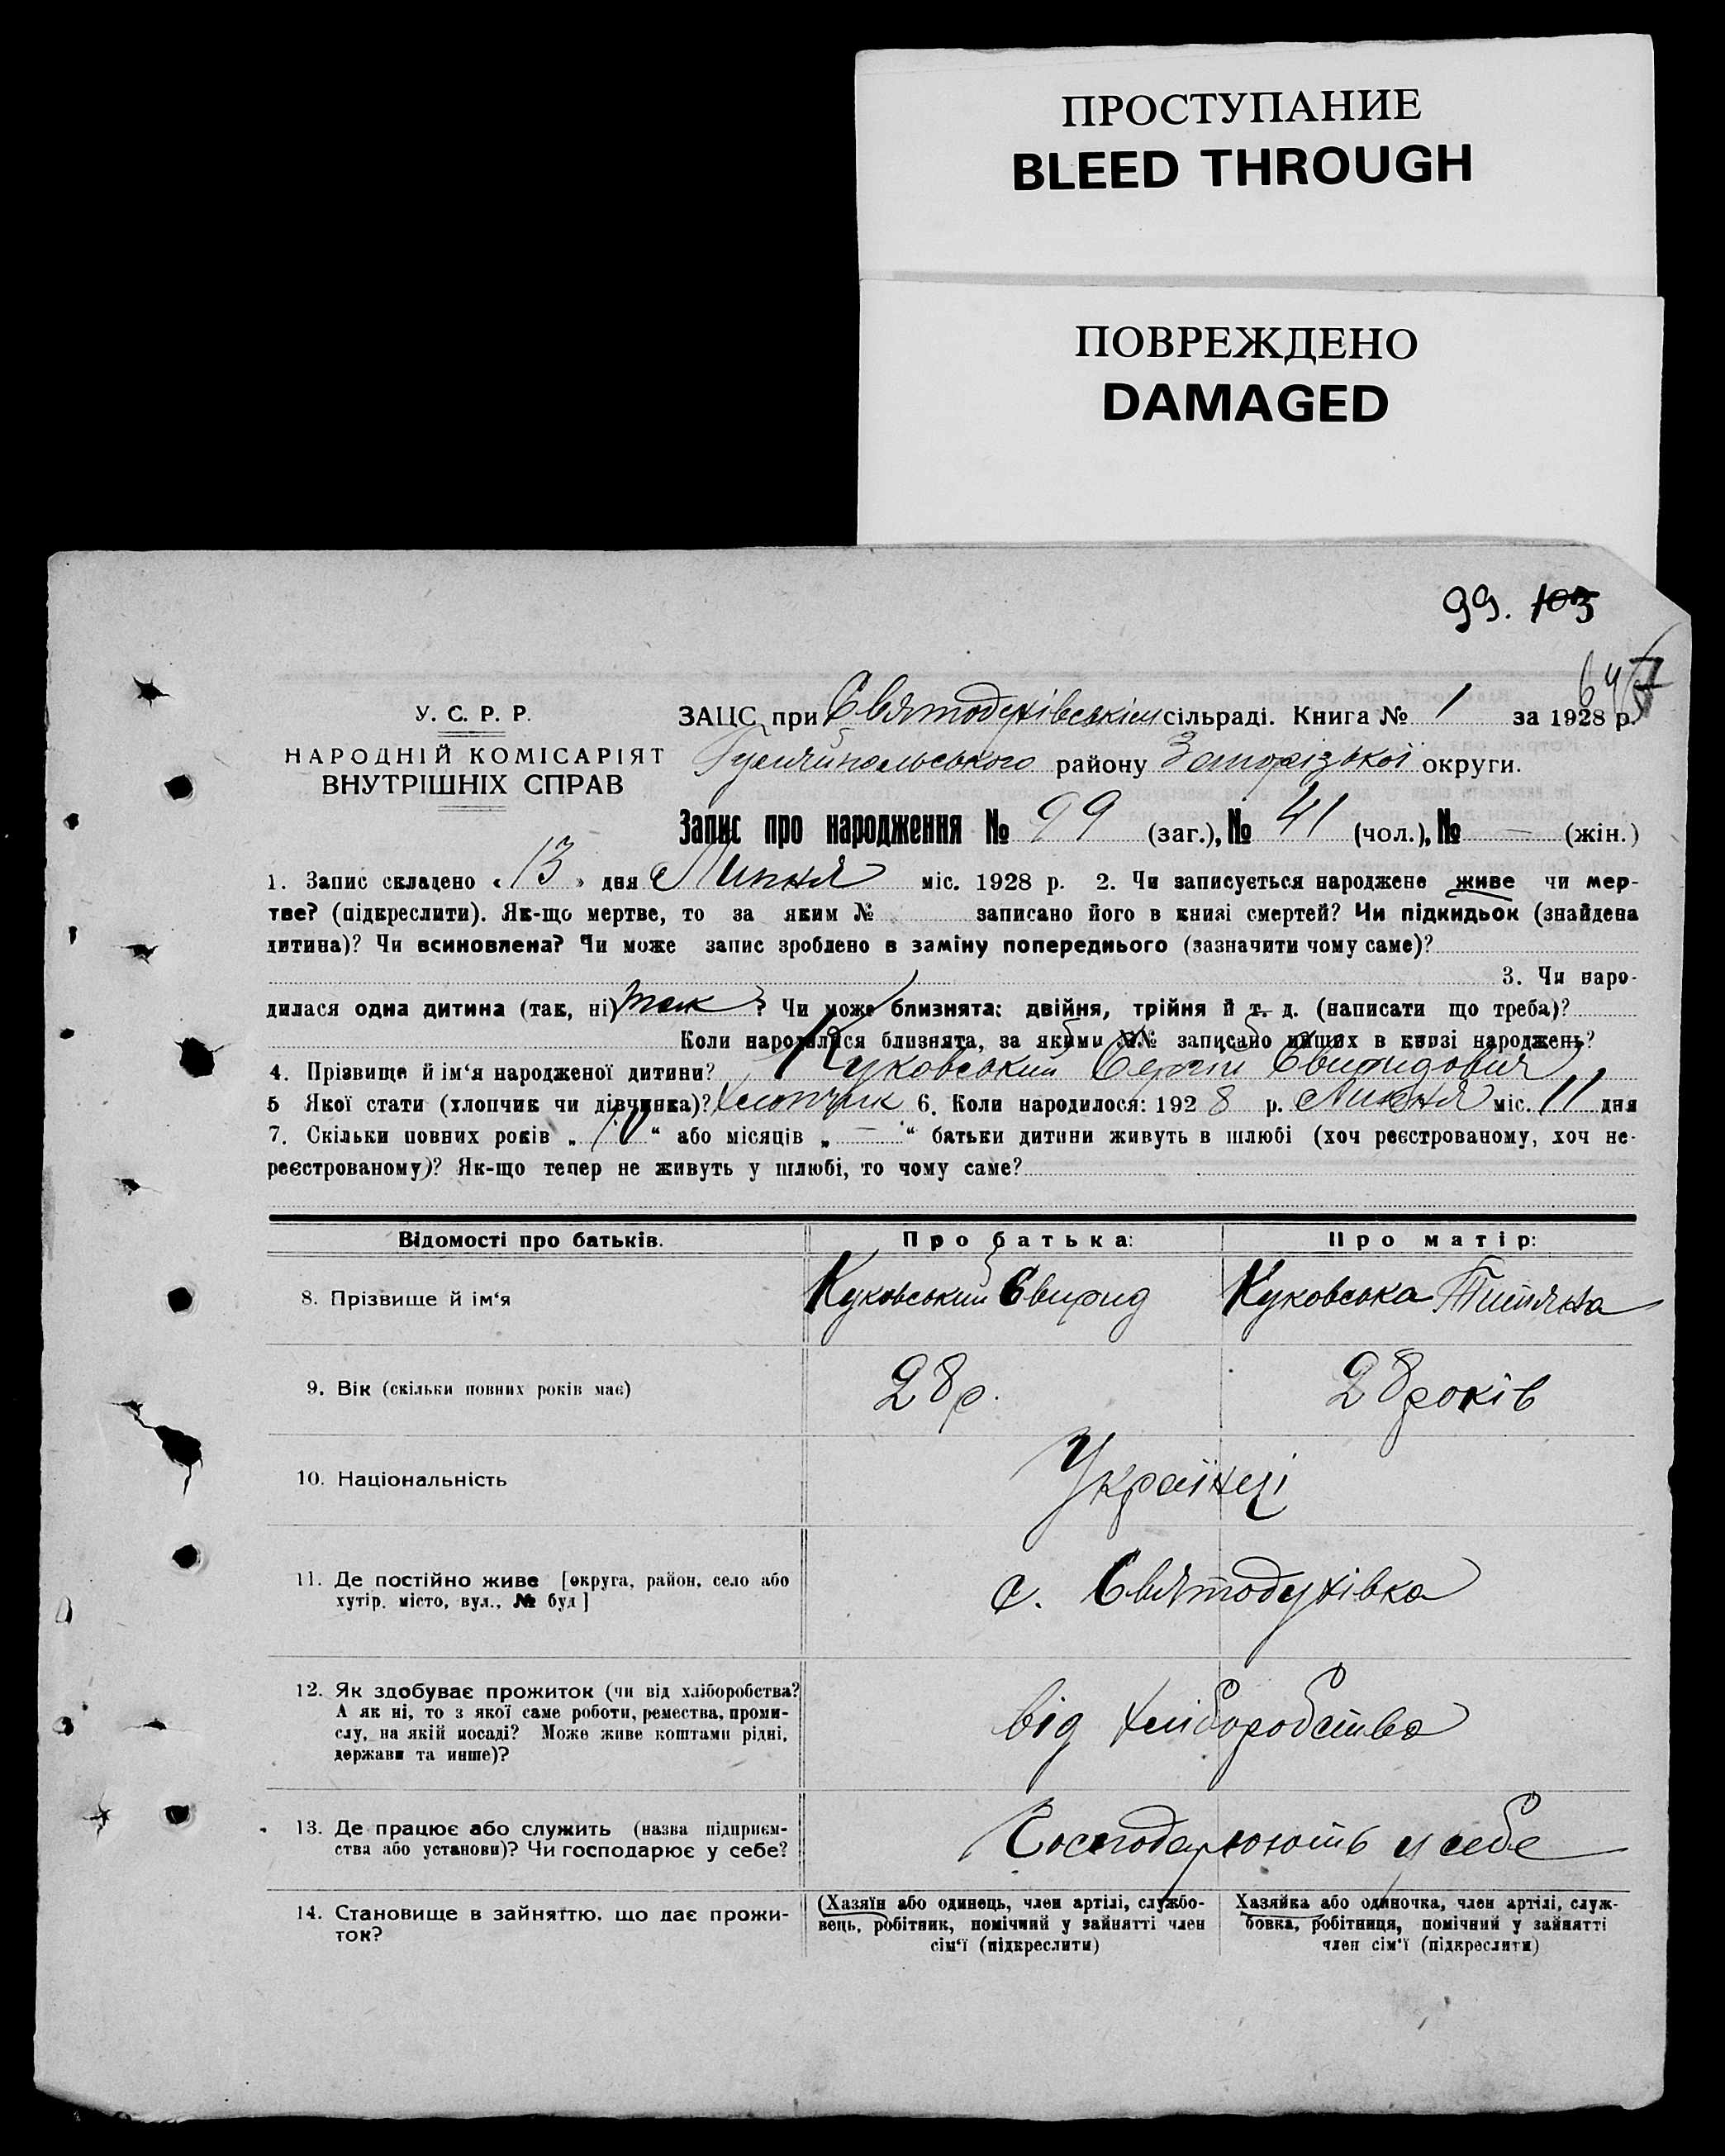 ПРОСТУПАНИЕ
BLEED THROUGH
ПОВРЕЖДЕНО
DAMAGED
99. 103
У. С. Р. Р.
НАРОДНІЙ КОМІСАРІЯТ
ВНУТРІШНІХ СПРАВ
ЗАЦС при Святодухівській сільраді. Книга № 1 за 1928 р.
Гуляйпольського району Запорізької округи.
Запис про народження № 99 (заг.), № 41 (чол.), № — (жін.)
1. Запис складено « 13 » дня Липня міс. 1928 р. 2. Чи записується народжене живе чи мер-
тве? (підкреслити). Як-що мертве, то за яким № записано його в книзі смертей? Чи підкидьок (знайдена
дитина)? Чи всиновлена? Чи може запис зроблено в заміну попереднього (зазначити чому саме)?
3. Чи наро-
дилася одна дитина (так, ні) так ? Чи може близнята: двійня, трійня й т. д. (написати що треба)?
Коли народилися близнята, за якими №№ записано инших в книзі народжень?
4. Прізвище й ім‘я народженої дитини? Куковський Сергій Свиридович
5 Якої стати (хлопчик чи дівчинка)? Хлопчик 6. Коли народилося: 192 8 р. Липня міс. 11 дня
7. Скільки повних років „ 10 “ або місяців „ — “ батьки дитини живуть в шлюбі (хоч реєстрованому, хоч не-
реєстрованому)? Як-що тепер не живуть у шлюбі, то чому саме?
Відомості про батьків. Про батька: Про матір:
8. Прізвище й ім‘я Куковський Свирид Куковська Титяна
9. Вік (скільки повних років має) 28 р. 28 років
10. Національність Українці
11. Де постійно живе [округа, район, село або
хутір. місто, вул., № буд] с. Святодухівка
12. Як здобуває прожиток (чи від хліборобства?
А як ні, то з якої саме роботи, ремества, проми-
слу, на якій посаді? Може живе коштами рідні,
держави та инше)? від хліборобства
13. Де працює або служить (назва підприєм-
ства або установи)? Чи господарює у себе? Господарюють у себе
14. Становище в зайняттю, що дає прожи-
ток?
(Хазяїн або одинець, член артілі, службо-
вець, робітник, помічний у зайнятті член
сім‘ї (підкреслити)
Хазяйка або одиночка, член артілі, служ-
бовка, робітниця, помічний у зайнятті
член сім‘ї (підкреслити)